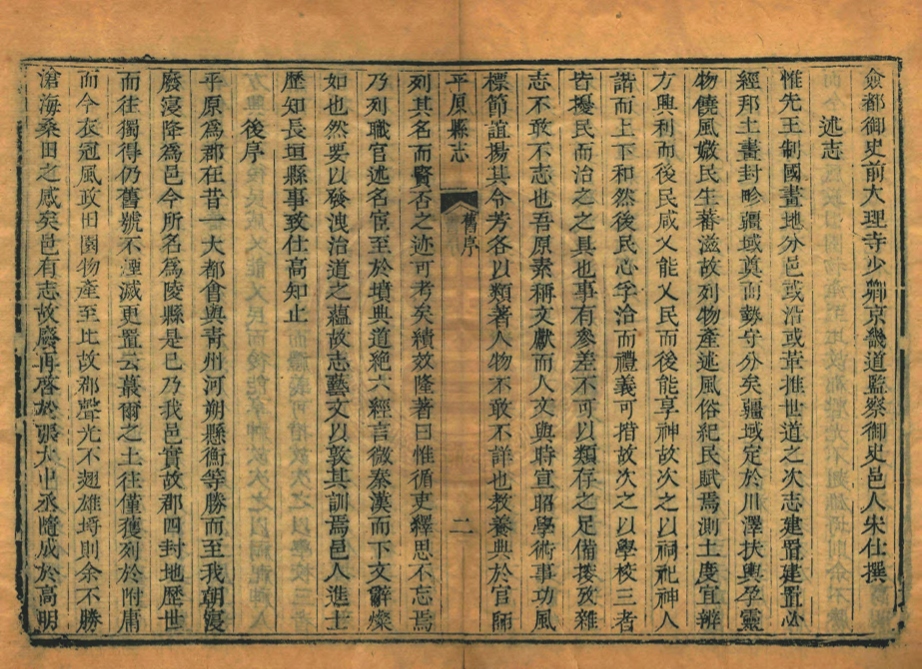 僉都御史前大理寺少卿京畿道監察御史邑人宋仕撰
述志
惟先王制國畫地分邑或沿或革推世道之次志建置建置必
經邦土畫封畛疆域奠而勢守分矣疆域定於川澤扶輿孕靈
物饒風媺民生蕃滋故列物產述風俗紀民賦焉測土度宜辨
方興利而後民咸乂能乂民而後能享神故次之以祠祀神人
諧而上下和然後民心孚洽而禮義可措故次之以學校三者
皆擾民而治之之具也事有參差不可以類存之足備摭攷雜
志不敢不志也吾原素稱文獻而人文與時宣昭學術事功風
標節誼揚其令芳各以類著人物不敢不詳也教養典於官師
平原縣志
舊序
二
列其名而賢否之迹可考矣績效隆著曰惟循吏繹思不忘焉
乃列職官述名宦至於墳典道絶六經言微秦漢而下文辭燦
如也然要以發洩治道之蘊故志藝文以敦其訓焉邑人進士
歷知長垣縣事致仕高知止
後序
平原爲郡在昔一大都會與青州河朔懸衡等勝而至我朝寖
廢寖降爲邑今所名爲陵縣是已乃我邑實故郡四封地歷世
而往獨得仍舊號不湮滅更置云蕞爾之土往僅獲列於附庸
而今衣冠風政田園物產至比故郡聲光不翅雄埓則余不勝
滄海桑田之感矣邑有志故廢再啓於張大中丞隨成於高明